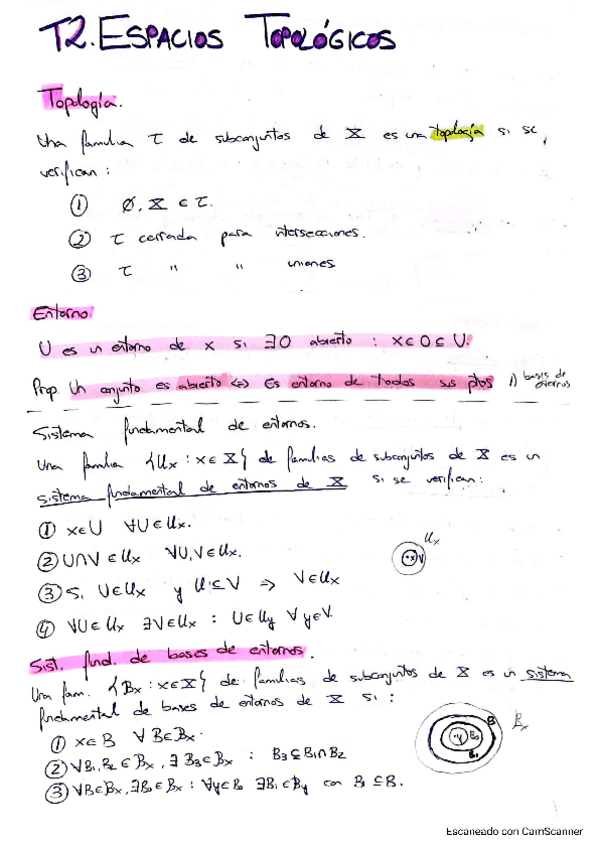 T2. ESPACIOS TOPOLÓGICOS
Topología.
Una familia τ de subconjuntos de X es una topología si se
verifican:
① ∅, X ∈ τ.
② τ cerrada para intersecciones.
③ τ " " uniones
Entorno:
U es un entorno de x si ∃O abierto : x∈O⊆U.
Prop. Un conjunto es abierto ⇔ Es entorno de todos sus ptos
bases de
Sistema fundamental de entornos.
Una familia {Ux : x∈X} de familias de subconjuntos de X es un
sistema fundamental de entornos de X si se verifican:
① x∈U ∀U∈Ux.
② U∩V ∈Ux ∀U,V∈Ux.
Ux
x V
③ Si U∈Ux y U⊆V ⇒ V∈Ux
④ ∀U∈Ux ∃V∈Ux : U∈Uy ∀y∈V.
Sist. fund. de bases de entornos.
Una fam. {Bx : x∈X} de familias de subconjuntos de X es un sistema
fundamental de bases de entornos de X si :
① x∈B ∀B∈Bx.
B Bx
B0
B1
② ∀B1,B2 ∈Bx, ∃ B3∈Bx : B3⊆B1∩B2
③ ∀B∈Bx, ∃B0∈Bx : ∀y∈B0 ∃B1∈By con B1⊆B.
Escaneado con CamScanner